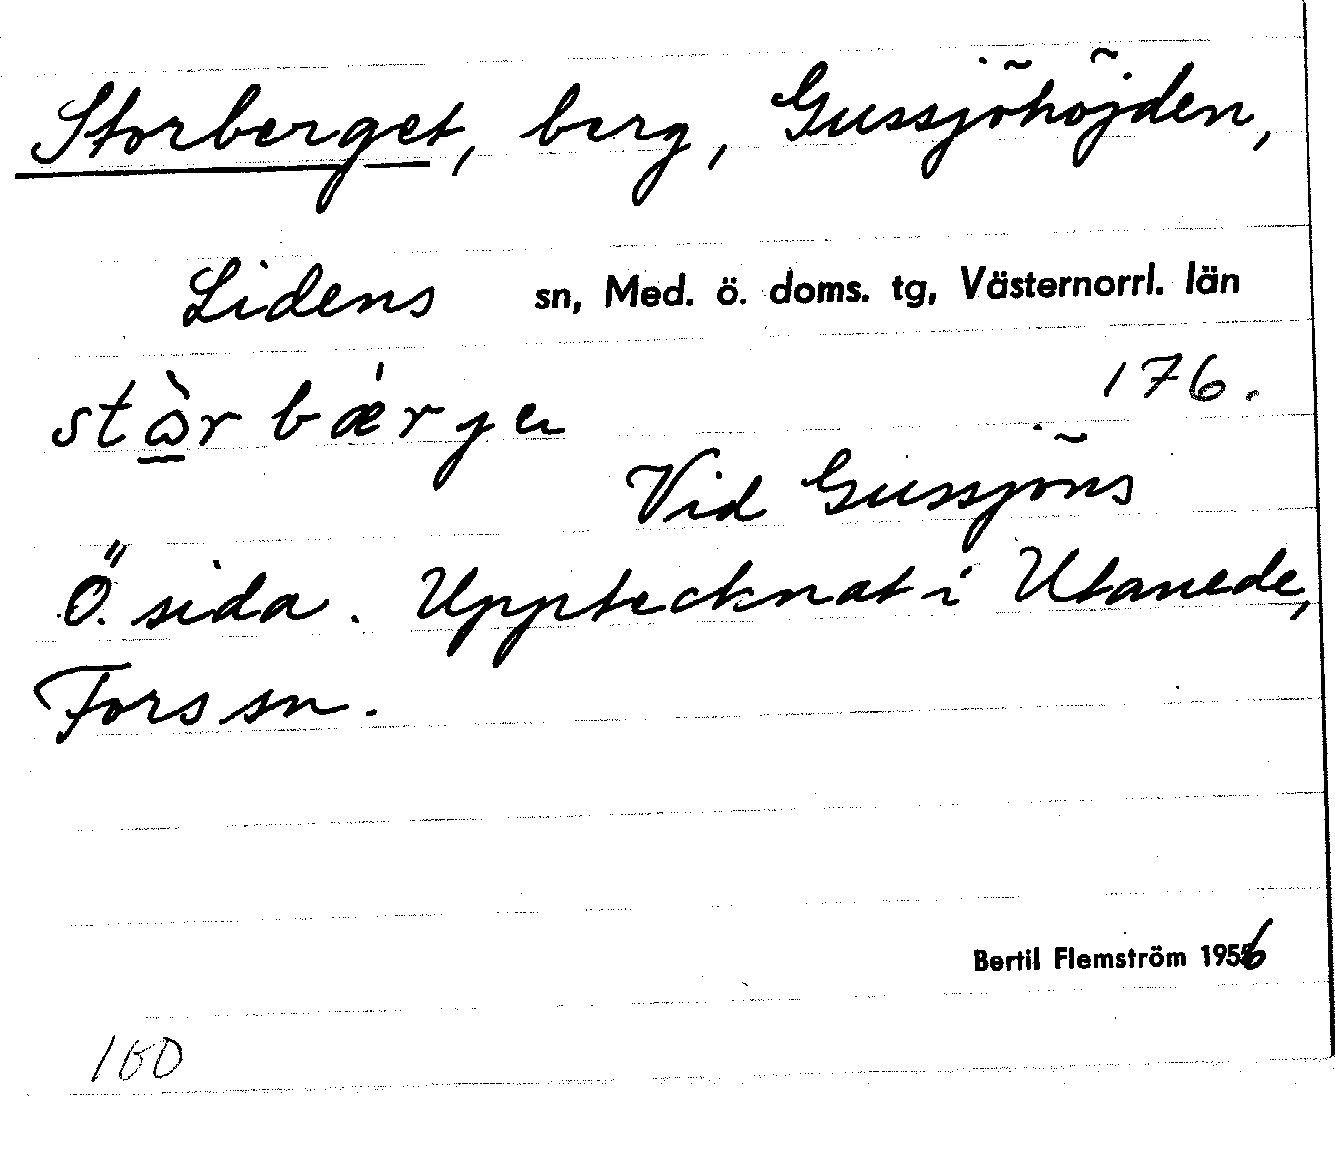 Storberget, berg, Gussjöhöjden,
Lidens sn, Med. ö. doms. tg, Västernorrl. län
176.
Vid Gussjöns
Ö. sida. Upptecknat i Utanede,
Fors sn.
Bertil Flemström 1956
160